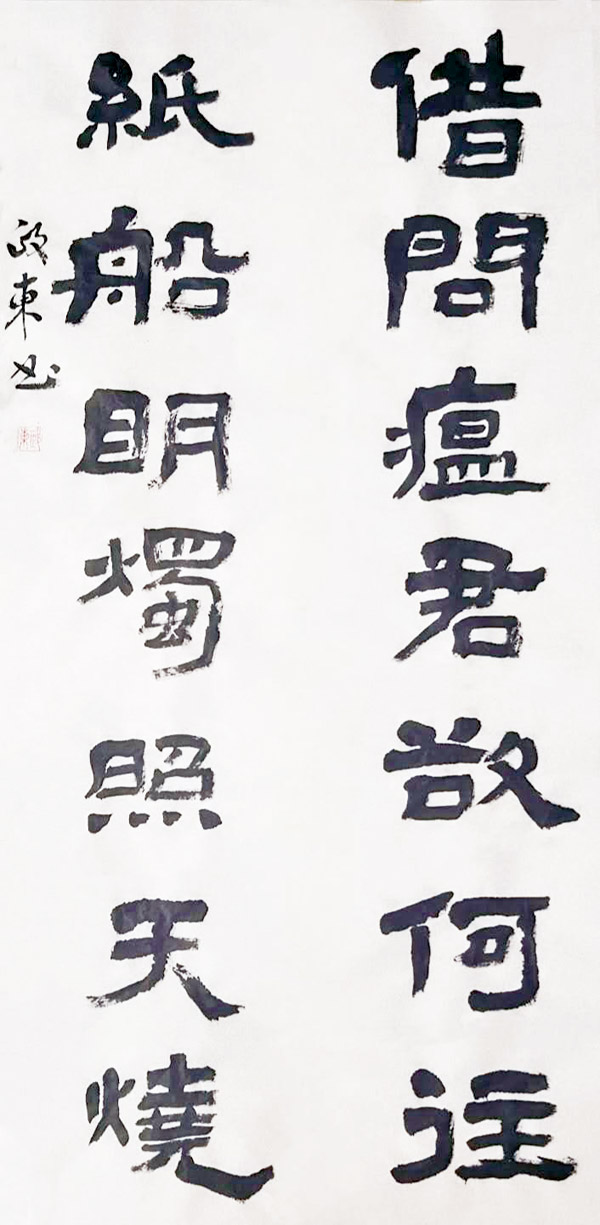 借問瘟君欲何往
紙船明燭照天燒
東书